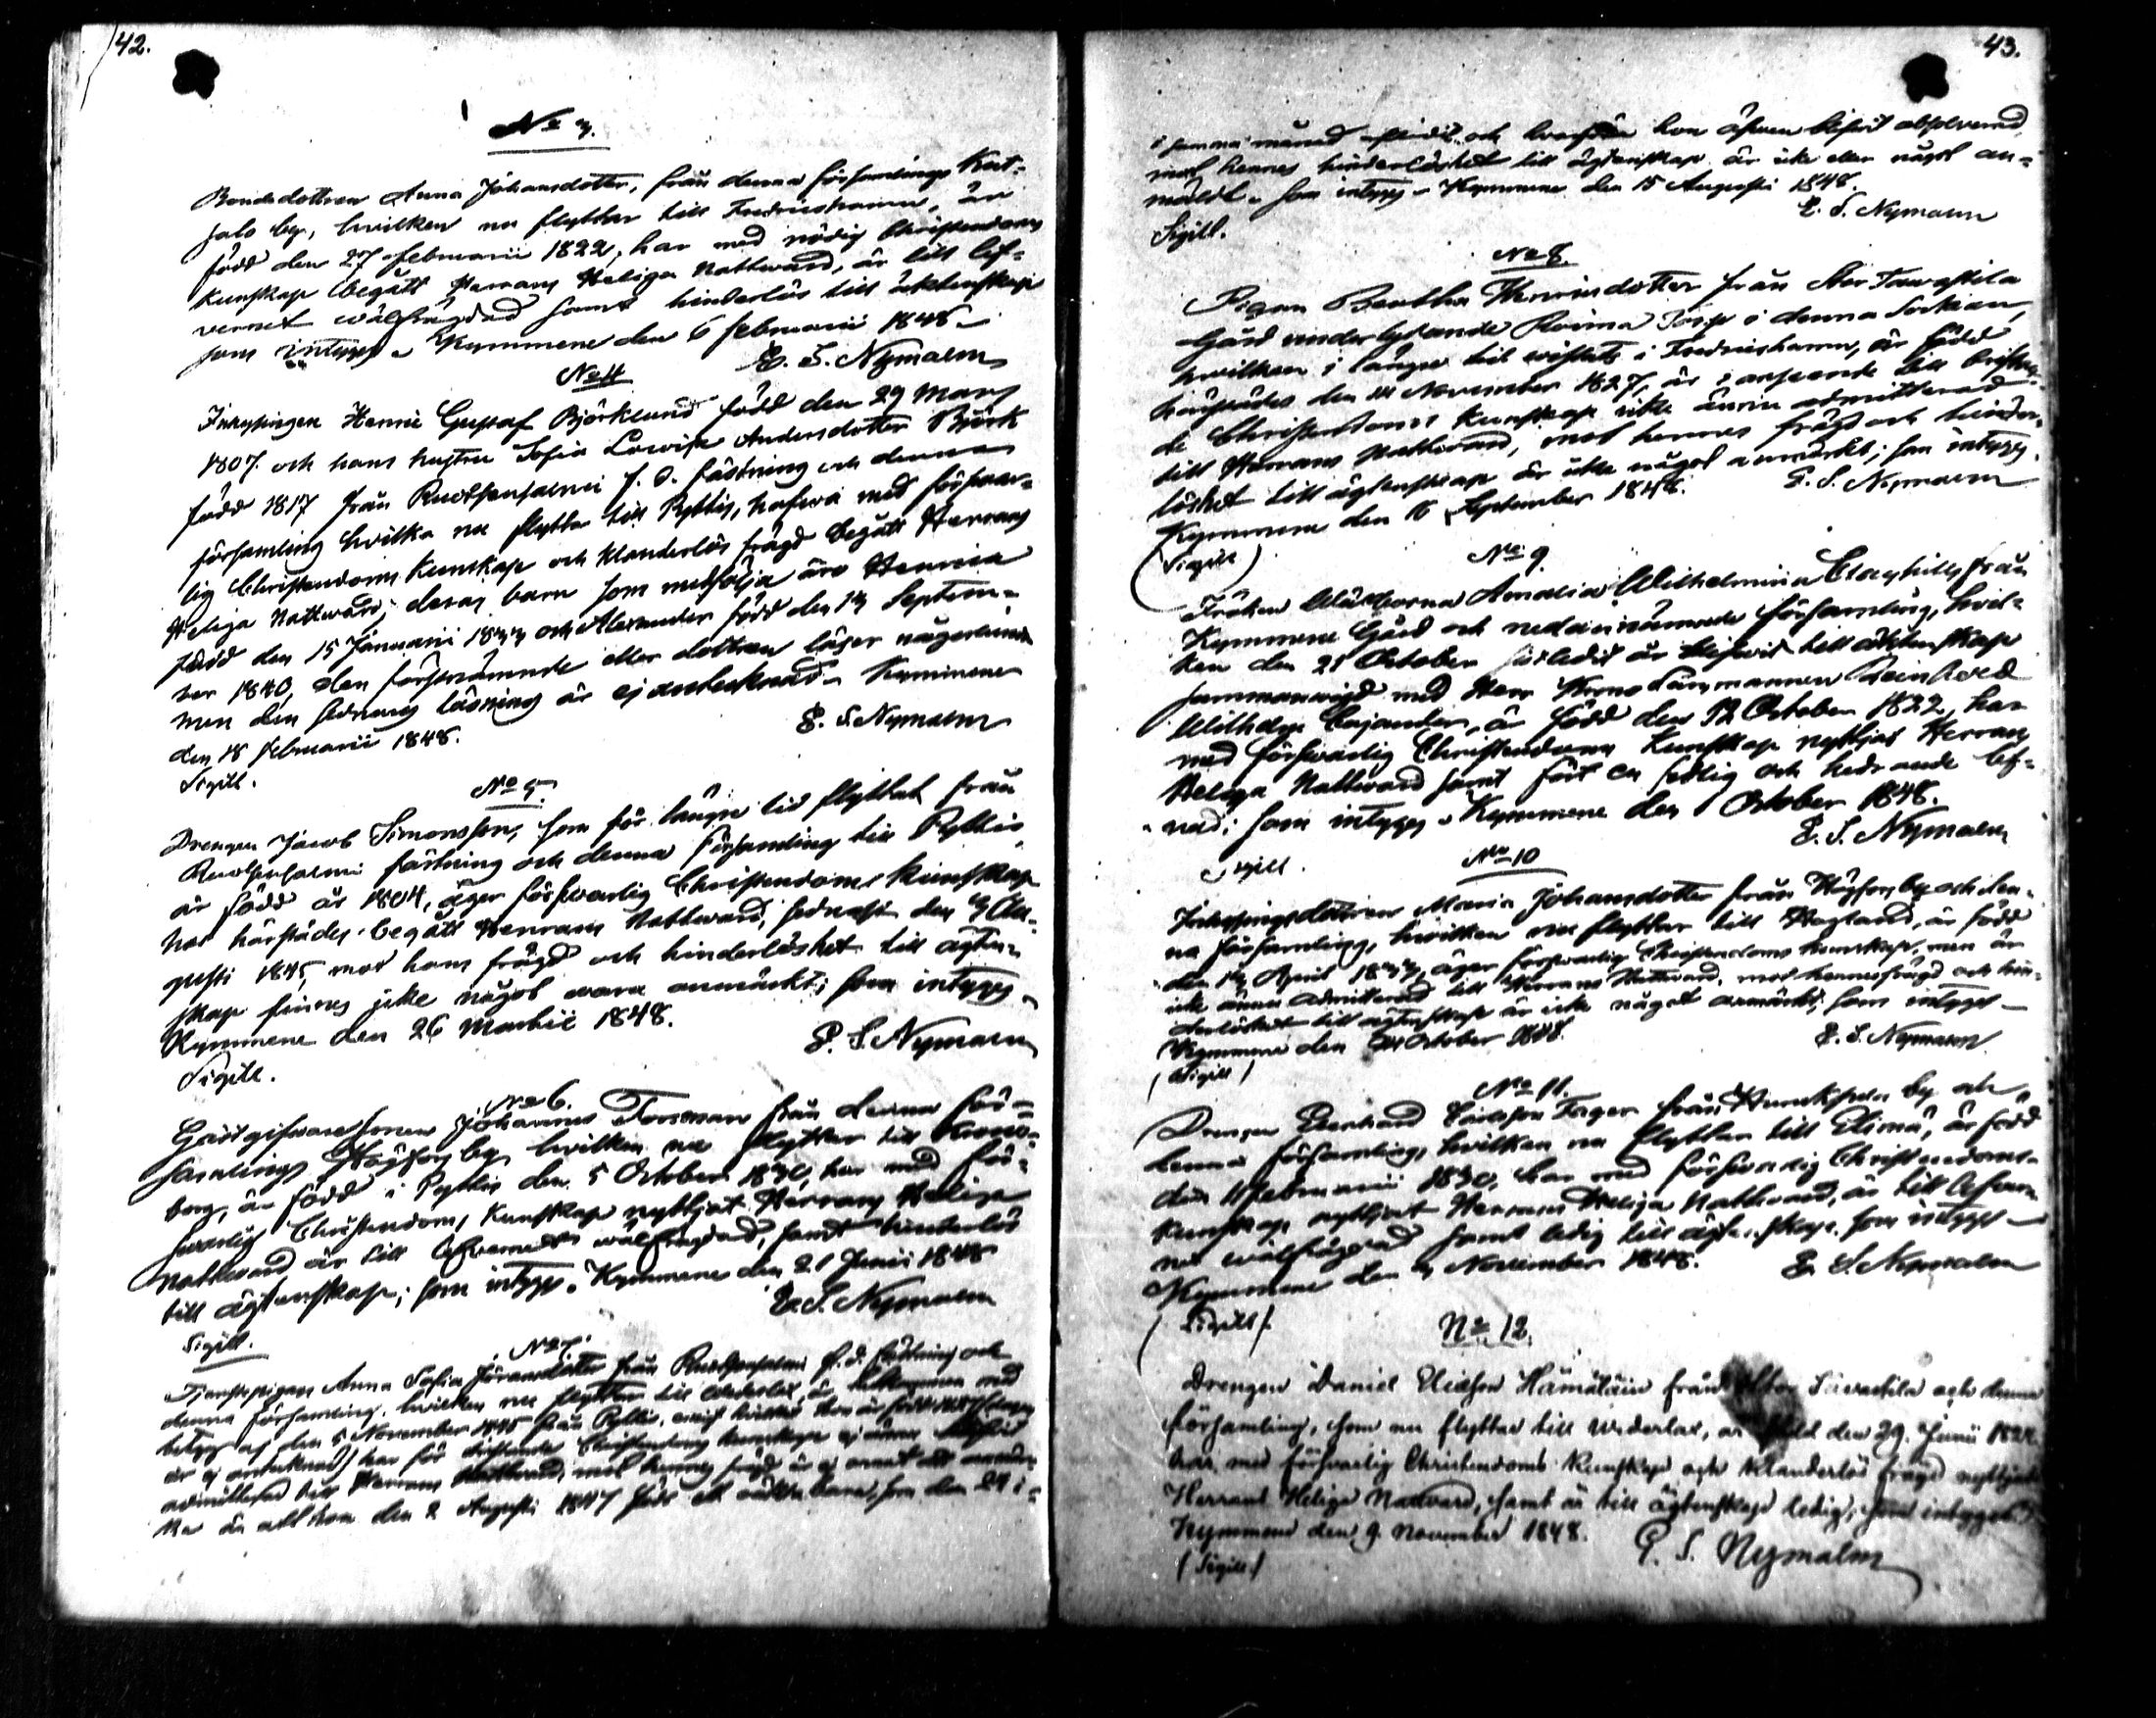 42.
No 3.
Bondedottren Anna Johansdotter, från denna församlings Kut-
jalo by, hvilken nu flyttar till Fredrikshamn, är
född den 27 februarii 1822, har med nödig Christendoms
Kunskap begått Herrans Heliga Nattward, är till lef-
vernet wälfrägdad samt hinderlös till äktenskap
som intygas. Kymmene den 6 februarii 1848.
E. S. Nymalm
No 4
Inhysingen Henric Gustaf Björklund född den 29 Mars
1807 och hans hustru Sofia Lowisa Andersdotter Björk
född 1817 från Ruotsensalmi f. d. fästning och denna
församling hvilka nu flytta till Pyttis, hafwa med förswar-
lig Christendoms Kunskap och klanderlös frägd begått Herrans
Heliga Nattward; deras barn som medfölja äro Henrica
född den 15 Januarii 1833 och Alexander född den 13 Septem-
ber 1840, den förstnämnde eller dottren läser någorlunda
men den sednares läsning är ej antecknad. Kymmene
den 18 februarii 1848.
E. S. Nymalm
Sigill.
No 5.
Drengen Jacob Simonsson, som för längre tid flyttat från
Ruotsensalmi fästning och denna församling till Pyttis,
är född år 1804, äger förswarlig Christendoms kunskap
har härstädes begått Herrans Nattward, sednast den 3 Au-
gusti 1845, mot hans frägd och hinderlöshet till ägten-
skap finnes icke något vara anmärkt; som intygas
Kymmene den 26 Martii 1848.
E. S. Nymalm
Sigill.
No 6.
Gästgifwaresonen Johannes Forsman från denna för-
samlings Högfors by hvilken nu flyttar till Krono-
borg, är född i Pyttis den 5 October 1830, har med för-
swarlig Christendoms Kunskap nyttjat Herrans Heliga
Nattward är till lefvernet wälfrägdad, samt hinderlös
till ägtenskap; som intygas. Kymmene den 21 Junii 1848
E. S. Nymalm
Sigill.
No 7.
Tjenstepigan Anna Sofia Göransdotter från Ruotsensalmi f. d. fästning och
denna församling, hvilken nu flyttar till Wederlax, är med
betyg af den 5 November 1845 från Pyttis, född 1817
är ej antecknad) har för Christendoms kunskap ej ännu blifvit
admitterad till Herrans Nattward, mot hennes frägd är ej annat
än att hon den 2 Augusti 1847 född ett oäkta barn, som den 24 i
43.
i samma månad och hon äfven blifvit absolverad
mot hennes hinderlöshet till ägtenskap är icke eller något an-
märkt. som intygas. Kymmene den 15 Augusti 1848.
E. S. Nymalm
Sigill.
No 8.
Pigan Beatha Henricsdotter från Stor Tawastila
Gård underlydande Torp i denna Socken,
hwilken i längre tid wistats i Fredrikshamn, är född
härstädes den 14 November 1827, är i anseende till
de Christendoms Kunskap icke ännu admitterad
till Herrans Nattward, mot hennes frägd och hinder-
löshet till ägtenskap är icke något anmärkt; som intygas.
Kymmene den 16 September 1848.
E. S. Nymalm
(Sigill)
No 9.
Fröken Wälborna Amalia Wilhelmina Clayhills från
Kymmene Gård och nedannämnde församling, hvil-
ken den 21 October är blifvit till äktenskap
sammanwigd med Herr Krono Länsmannen Reinhold
Wilhelm Cajander, är född den 12 October 1822, har
med förswarlig Christendoms Kunskap nyttjat Herrans
Heliga Nattward samt fört en sedlig och hedrande lef-
nad; som intygas. Kymmene den October 1848.
E. S. Nymalm
Sigill.
No 10
Inhysingsdottren Maria Johansdotter från Högfors by och den-
na församling, hwilken nu flyttar till Hogland, är född
den 13 April 1833, äger förswarlig Christendoms kunskap, men är
icke ännu admitterad till Herrans Nattward, mot hennes frägd och hin-
derlöshet till ägtenskap är icke något anmärkt; som intygas
Kymmene den October 1848.
E. S. Nymalm
(Sigill)
No 11.
Drengen Eberhard Carlsson Fager från by och
denna församling, hvilken nu flyttar till Elimä, är född
den 11 februarii 1830, har med förswarlig Christendoms
kunskap nyttjat Herrans Heliga Nattward, är till lefver-
net wälfrägdad samt ledig till ägtenskap, som intygas
Kymmene den 4 November 1848.
E. S. Nymalm
(Sigill).
No 12.
Drengen Daniel Eliasson Hämäläin från Stor Tavastila och denna
församling, som nu flyttar till Wederlax, är född den 29. Junii 1824.
har med förswarlig Christendoms kunskap och klanderlös frägd nyttjat
Herrans Heliga Nattvard, samt är till ägtenskap ledig; som intygas.
Kymmene den 9. November 1848.
E. S. Nymalm
(Sigill)